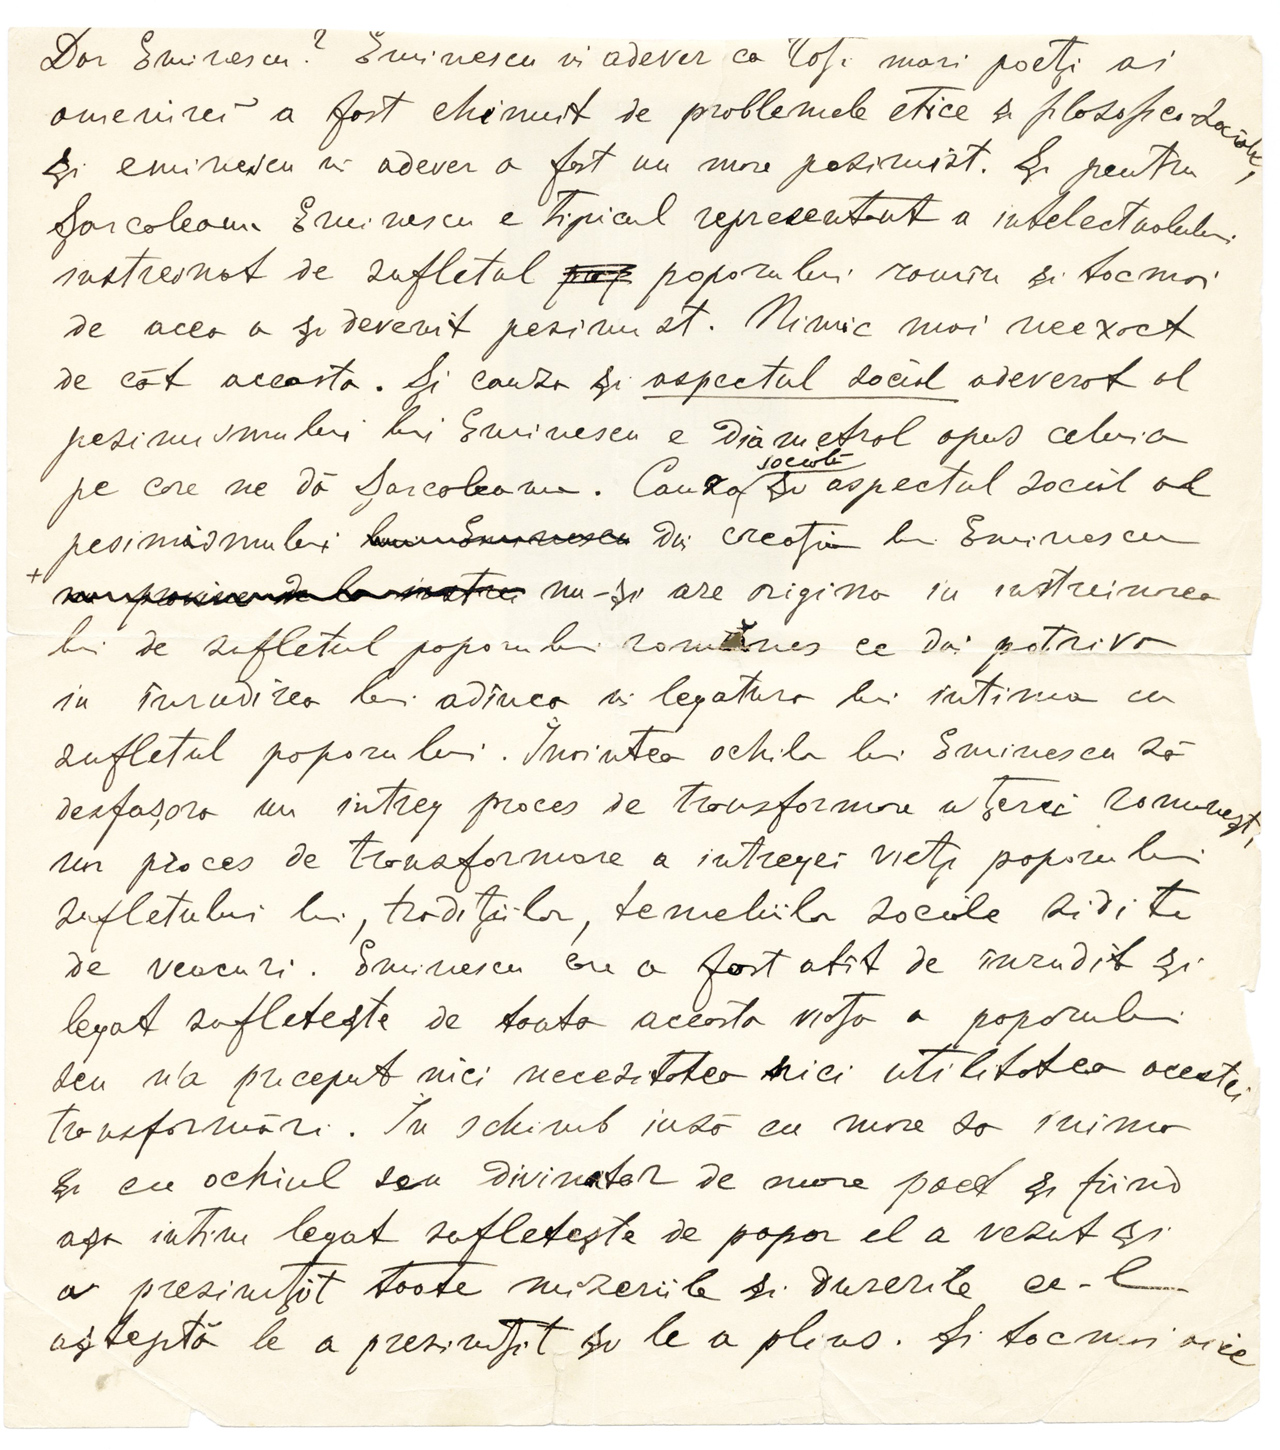 Dar Eminescu? Eminescu în adever ca toți mari poeți ai
omenirei a fost chinuit de problemele etice și filosofice sociale,
Și eminescu în adever a fost un mare pesimist. Și pentru
Șarcaleanu Eminescu e tipicul representant a intelectualului
instreinat de sufletul poporului romîn și tocmai
de acea a și devenit pesimist. Nimic mai neexact
de cât aceasta. Și cauza și aspectul social adeverat al
pesimismului lui Eminescu e diametral opus celuia
pe care ne dă Șarcaleanu. Cauza socială și aspectul social al
pesimismului lui Eminescu din creația lui Eminescu
+ nu provine de la instrei nu-și are origina in instreinarea
lui de sufletul poporului romînes ce din potriva
in înrudirea lui adînca în legatura lui intima cu
sufletul poporului. Înaintea ochilor lui Eminescu să
desfașora un intreg proces de transformare a țerei romînești,
un proces de transformare a intregei vieți poporului
sufletului lui, tradițiilor, temeliilor sociale zidite
de veacuri. Eminescu care a fost atît de înrudit și
legat sufletește de toata aceasta viața a poporului
seu n'a priceput nici necesitatea nici utilitatea acestei
transformări. În schimb însă cu mare sa inima
și cu ochiul seu divinator de mare poet și fiind
așa intim legat sufletește de popor el a vezut și
a presimțit toate mizeriile și durerile ce-l
așteptă le a presimțit și le a plins. Și tocmai aice